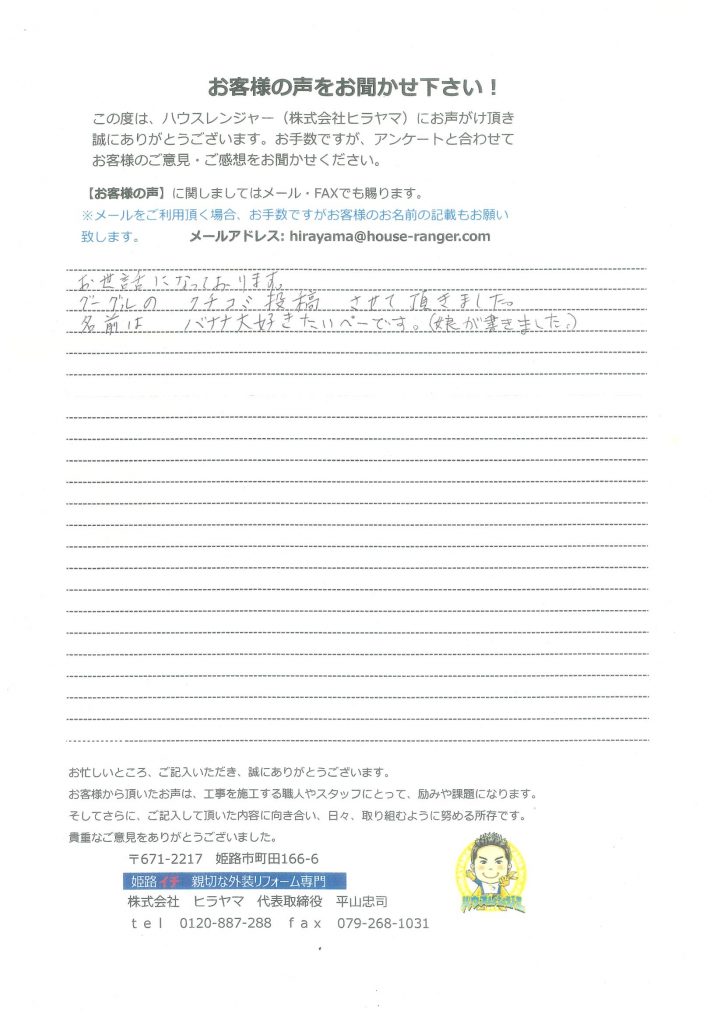 お客様の声をお聞かせ下さい！
この度は、ハウスレンジャー（株式会社ヒラヤマ）にお声がけ頂き
誠にありがとうございます。お手数ですが、アンケートと合わせて
お客様のご意見・ご感想をお聞かせください。
【お客様の声】に関しましてはメール・FAXでも賜ります。
※メールをご利用頂く場合、お手数ですがお客様のお名前の記載もお願い
致します。 メールアドレス: hirayama@house-ranger.com
お世話になっております。
グーグルの クチコミ投稿 させて頂きました。
名前は バナナ大好きたいぺーです。（娘が書きました。）
お忙しいところ、ご記入いただき、誠にありがとうございます。
お客様から頂いたお声は、工事を施工する職人やスタッフにとって、励みや課題になります。
そしてさらに、ご記入して頂いた内容に向き合い、日々、取り組むように努める所存です。
貴重なご意見をありがとうございました。
〒671-2217 姫路市町田166-6
姫路イチ 親切な外装リフォーム専門
株式会社 ヒラヤマ 代表取締役 平山忠司
ｔｅｌ 0120-887-288 ｆａｘ 079-268-1031
ハウスレンジャー